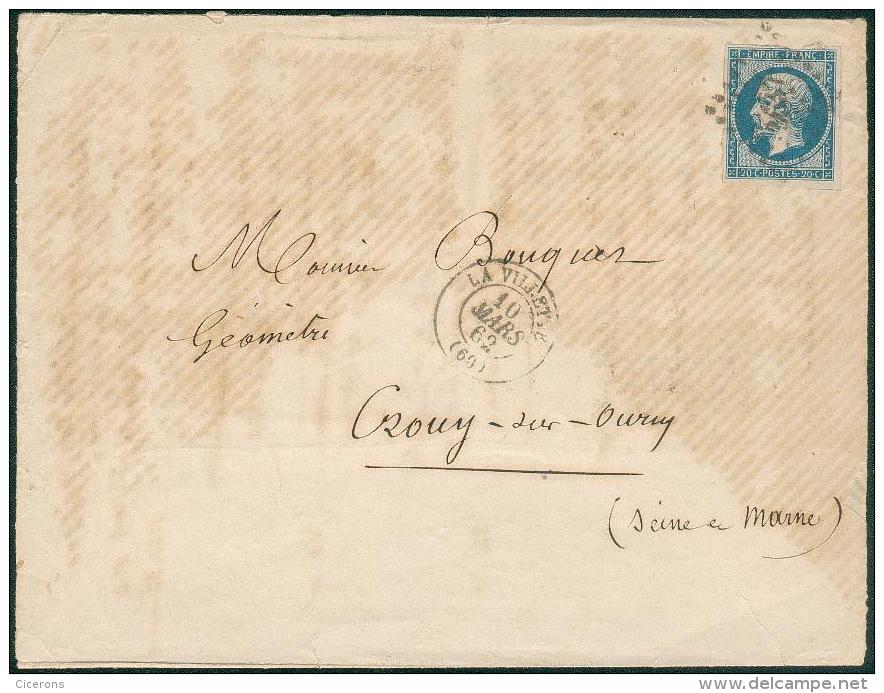 EMPIRE FRANC
20 C POSTES 20 C
Monsieur Bouquet
LA VILLETTE
10
MARS
62
(60)
Géomètre
Crouy-sur-Ourcq
(Seine et Marne)
Cicerons
delcampe.net